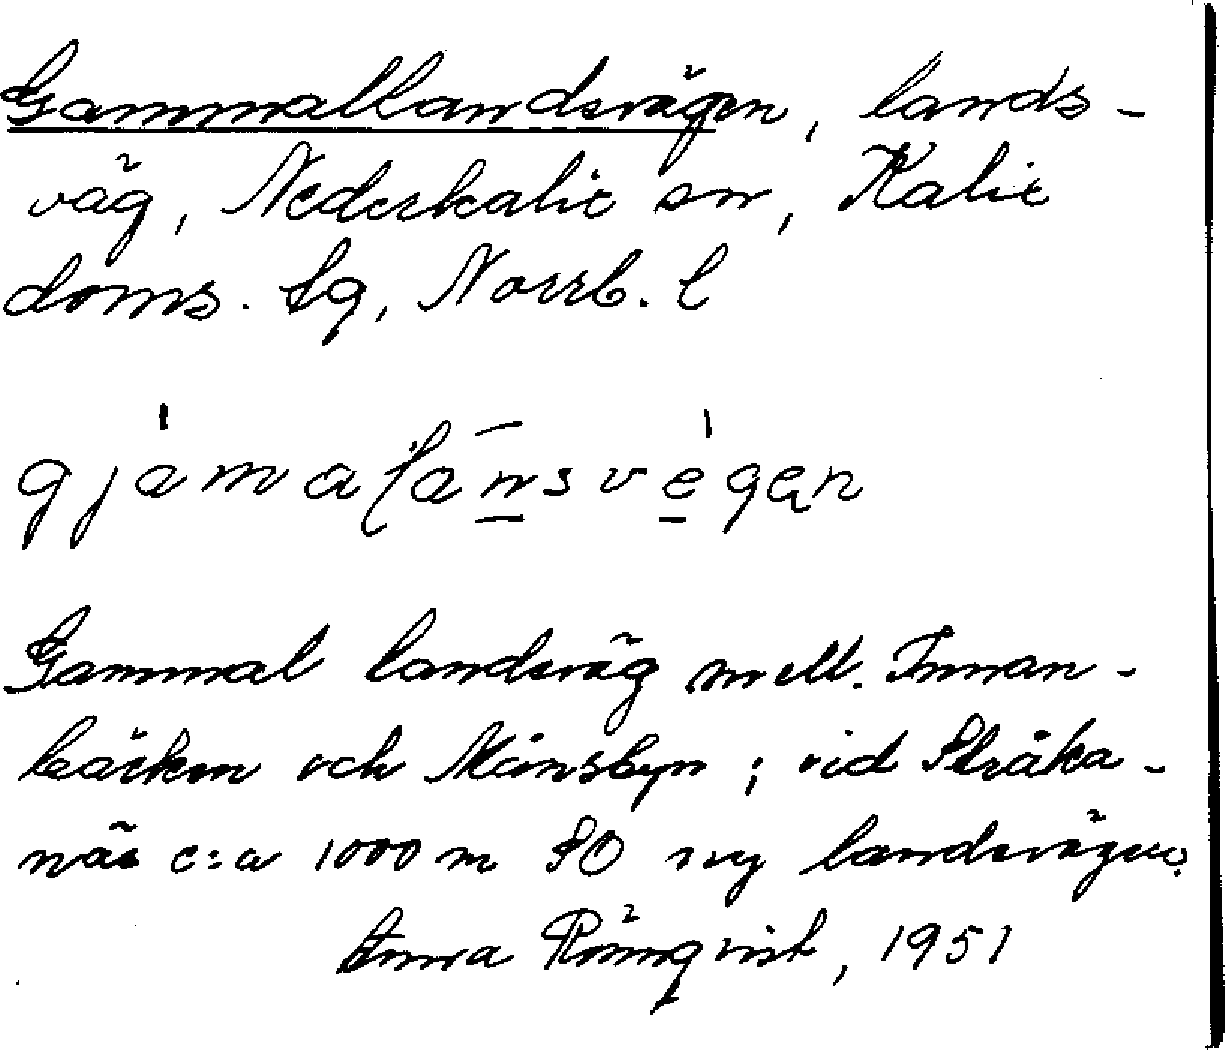 Gammallandsvägen, lands-
väg, Nederkalix sn, Kalix
doms. lg, Norrb. l
gjamalansvegen
Gammal landsväg mell. Innan-
bäcken och Månsbyn; vid Stråka-
näs c:a 1000 m SO ny landsvägen.
Anna Rönnqvist, 1951